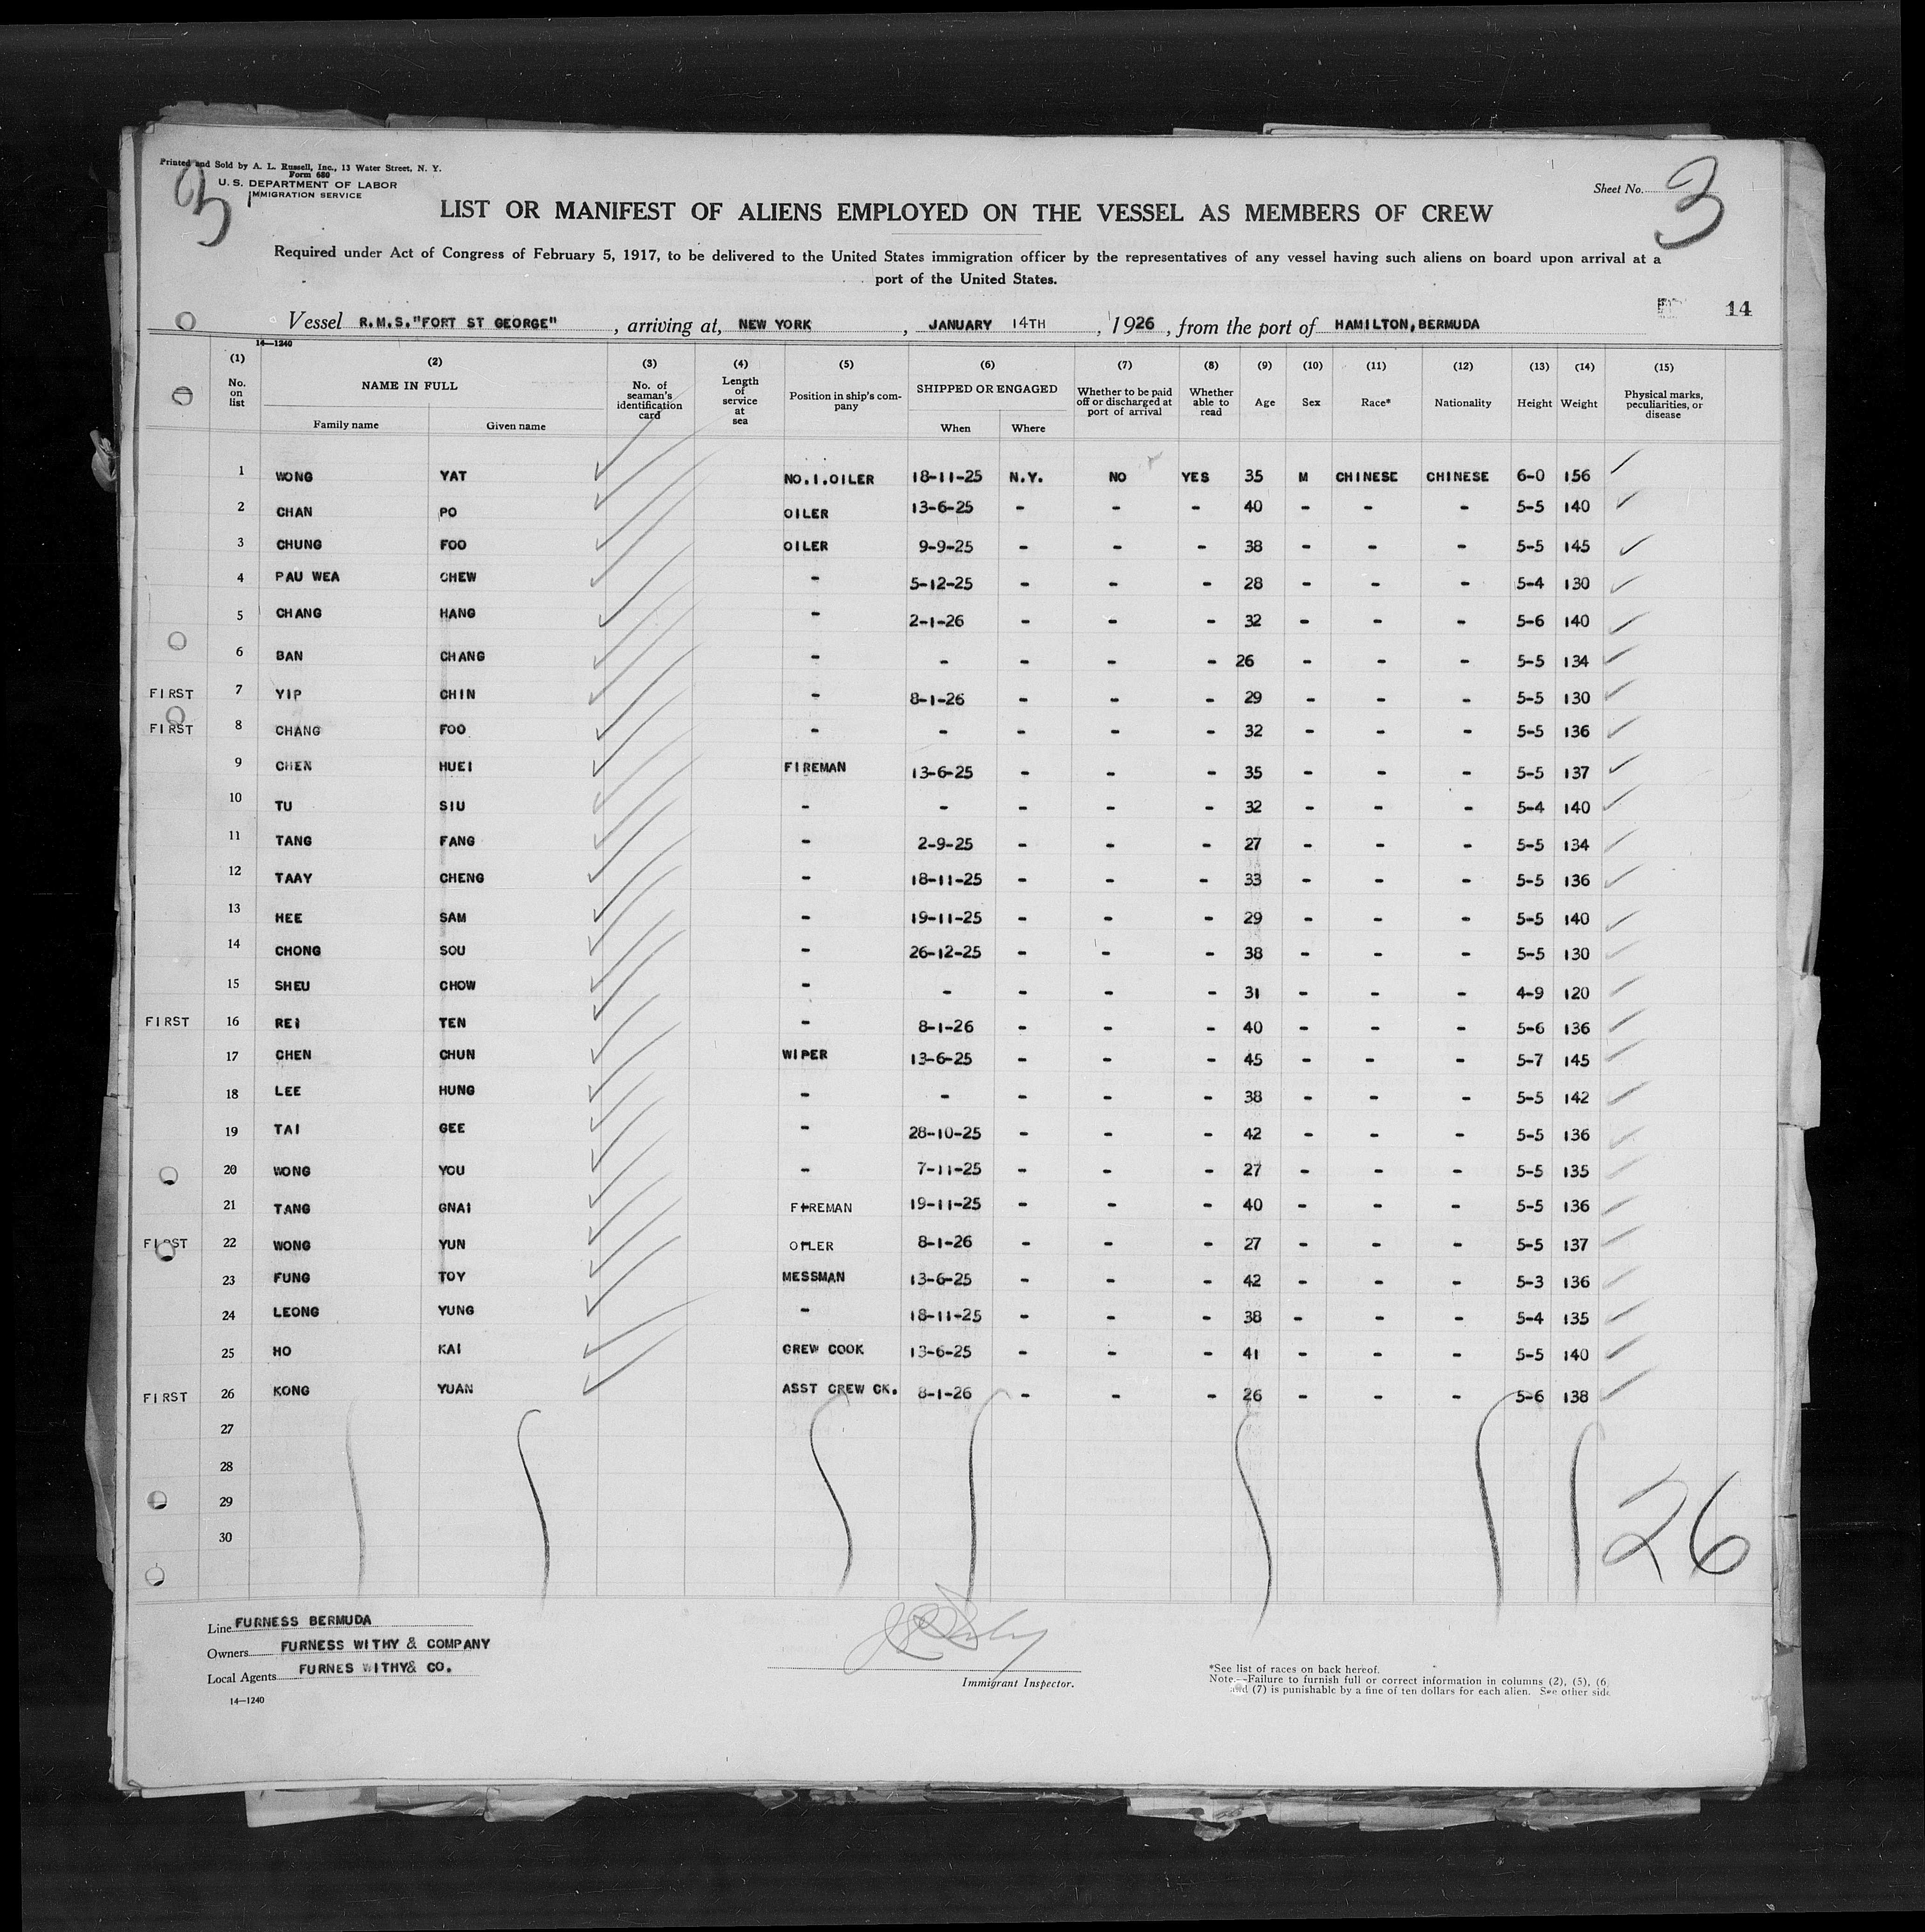 Printed and Sold by A. L. Russell, Inc., 13 Water Street, N. Y.
Form 680
U. S. DEPARTMENT OF LABOR
IMMIGRATION SERVICE
3
Sheet No. 3
LIST OR MANIFEST OF ALIENS EMPLOYED ON THE VESSEL AS MEMBERS OF CREW
Required under Act of Congress of February 5, 1917, to be delivered to the United States immigration officer by the representatives of any vessel having such aliens on board upon arrival at a
port of the United States.
14
Vessel R.M.S."FORT ST GEORGE" , arriving at, NEW YORK , JANUARY 14TH , 1926 , from the port of HAMILTON,BERMUDA
14—1240
(1) No. on list (2) NAME IN FULL Family name Given name (3) No. of seaman's identification card (4) Length of service at sea (5) Position in ship's company (6) SHIPPED OR ENGAGED When Where (7) Whether to be paid off or discharged at port of arrival (8) Whether able to read (9) Age (10) Sex (11) Race* (12) Nationality (13) Height (14) Weight (15) Physical marks, peculiarities, or disease
1 WONG YAT NO.1.OILER 18-11-25 N.Y. NO YES 35 M CHINESE CHINESE 6-0 156
2 CHAN PO OILER 13-6-25 - - - 40 - - - 5-5 140
3 CHUNG FOO OILER 9-9-25 - - - 38 - - - 5-5 145
4 PAU WEA CHEW - 5-12-25 - - - 28 - - - 5-4 130
5 CHANG HANG - 2-1-26 - - - 32 - - - 5-6 140
6 BAN CHANG - - - - - 26 - - - 5-5 134
FIRST 7 YIP CHIN - 8-1-26 - - - 29 - - - 5-5 130
FIRST 8 CHANG FOO - - - - - 32 - - - 5-5 136
9 CHEN HUEI FIREMAN 13-6-25 - - - 35 - - - 5-5 137
10 TU SIU - - - - - 32 - - - 5-4 140
11 TANG FANG - 2-9-25 - - - 27 - - - 5-5 134
12 TAAY CHENG - 18-11-25 - - - 33 - - - 5-5 136
13 HEE SAM - 19-11-25 - - - 29 - - - 5-5 140
14 CHONG SOU - 26-12-25 - - - 38 - - - 5-5 130
15 SHEU CHOW - - - - - 31 - - - 4-9 120
FIRST 16 REI TEN - 8-1-26 - - - 40 - - - 5-6 136
17 CHEN CHUN WIPER 13-6-25 - - - 45 - - - 5-7 145
18 LEE HUNG - - - - - 38 - - - 5-5 142
19 TAI GEE - 28-10-25 - - - 42 - - - 5-5 136
20 WONG YOU - 7-11-25 - - - 27 - - - 5-5 135
21 TANG GNAI FIREMAN 19-11-25 - - - 40 - - - 5-5 136
FIRST 22 WONG YUN OILER 8-1-26 - - - 27 - - - 5-5 137
23 FUNG TOY MESSMAN 13-6-25 - - - 42 - - - 5-3 136
24 LEONG YUNG - 18-11-25 - - - 38 - - - 5-4 135
25 HO KAI CREW COOK 13-6-25 - - - 41 - - - 5-5 140
FIRST 26 KONG YUAN ASST CREW CK. 8-1-26 - - - 26 - - - 5-6 138
27
28
29
30
26
Line FURNESS BERMUDA
Owners FURNESS WITHY & COMPANY
Local Agents FURNES WITHY& CO.
14—1240
Immigrant Inspector.
*See list of races on back hereof.
Note.—Failure to furnish full or correct information in columns (2), (5), (6
and (7) is punishable by a fine of ten dollars for each alien. See other side